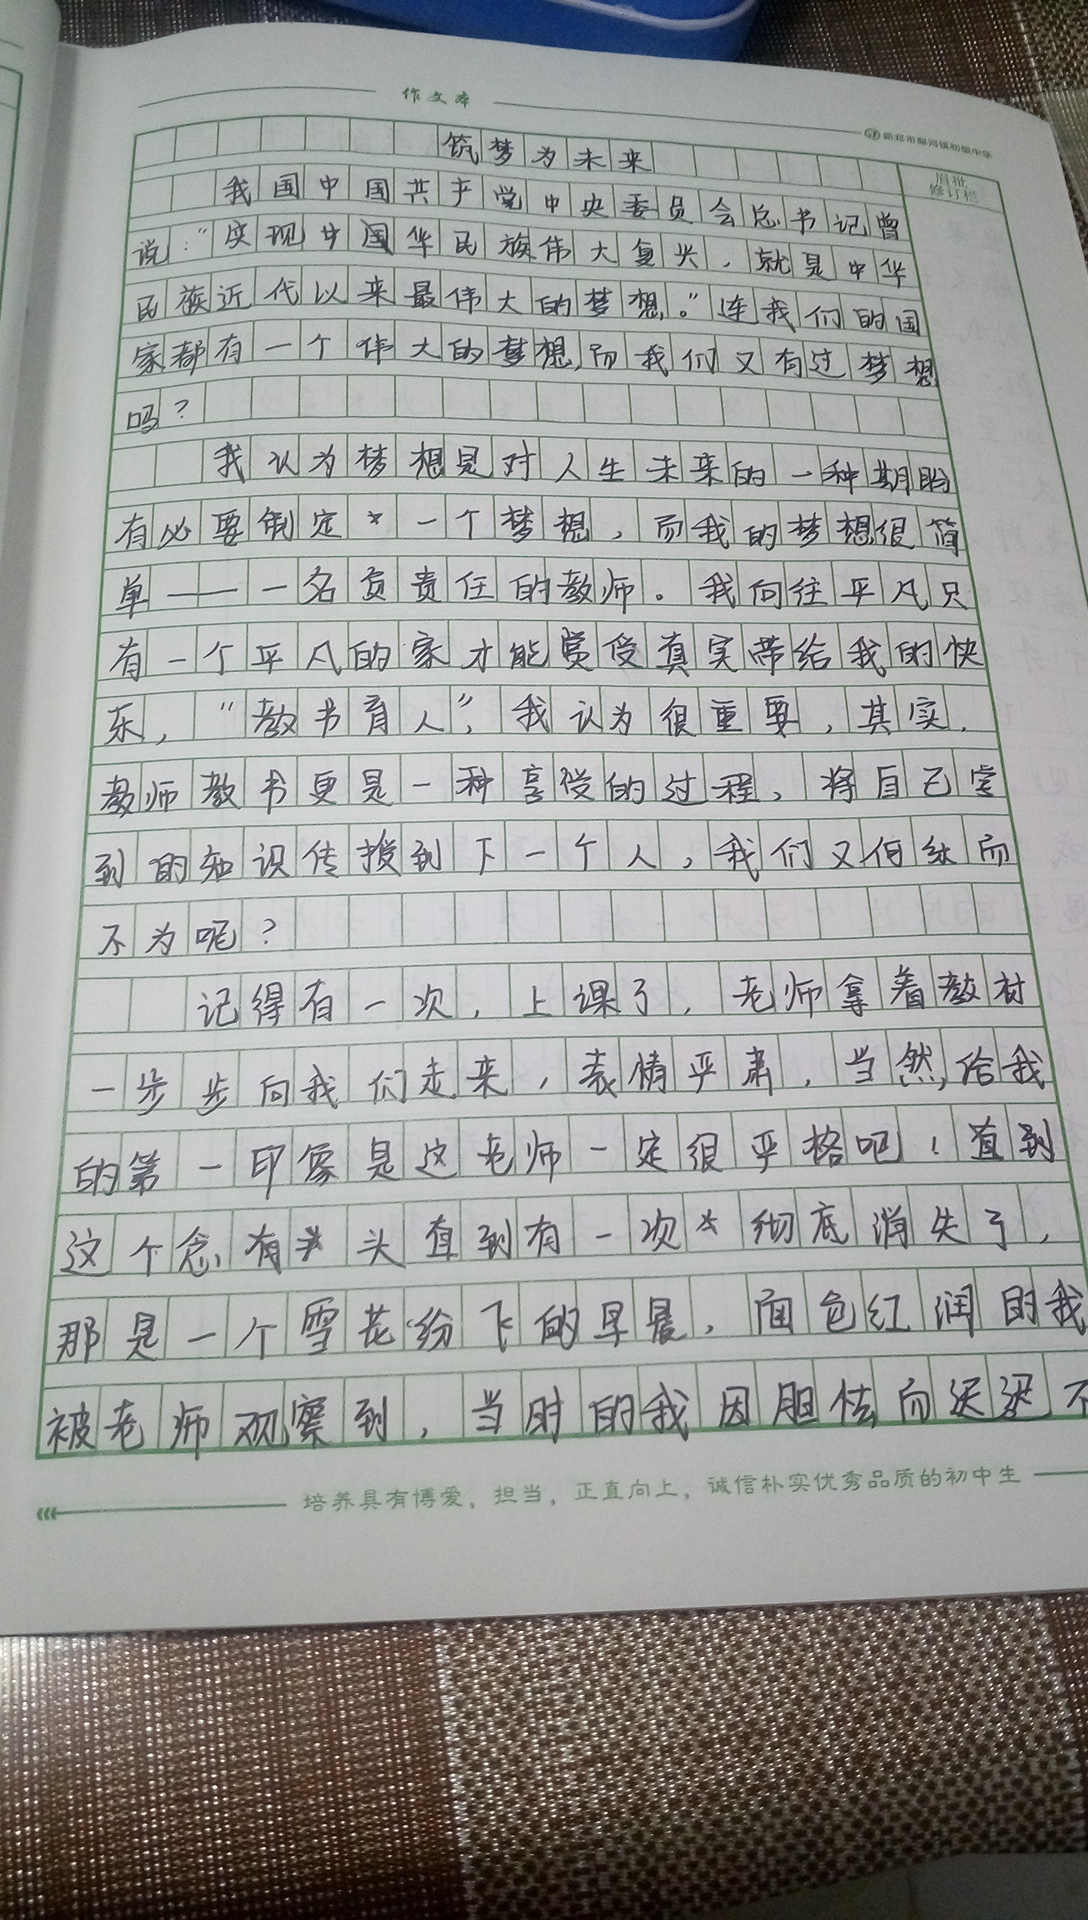 作文本
新郑市梨河镇初级中学
眉批
修订栏
筑梦为未来
我国中国共产党中央委员会总书记曾
说：“实现中国华民族伟大复兴，就是中华
民族近代以来最伟大的梦想。”连我们的国
家都有一个伟大的梦想，而我们又有过梦想
吗？
我认为梦想是对人生未来的一种期盼
有必要制定一个梦想，而我的梦想很简
单——一名负责任的教师。我向往平凡只
有一个平凡的家才能赏受真实带给我的快
乐，“教书育人”，我认为很重要，其实，
教师教书更是一种享受的过程，将自己学
到的知识传授到下一个人，我们又何乐而
不为呢？
记得有一次，上课了，老师拿着教材
一步步向我们走来，表情严肃，当然，给我
的第一印象是这老师一定很严格吧！直到
这个念有头直到有一次彻底消失了，
那是一个雪花纷飞的早晨，面色红润的我
被老师观察到，当时的我因胆怯而迟迟不
培养具有博爱，担当，正直向上，诚信朴实优秀品质的初中生